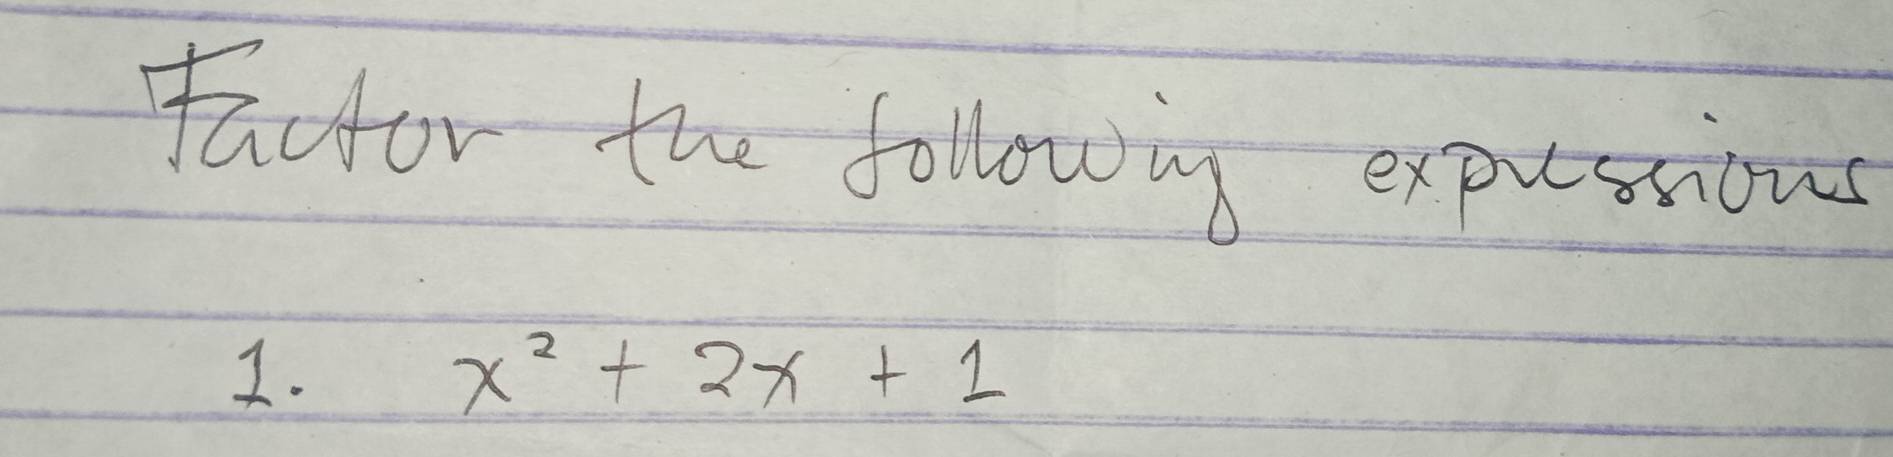 Factor the following expressions
1. x² + 2x + 1